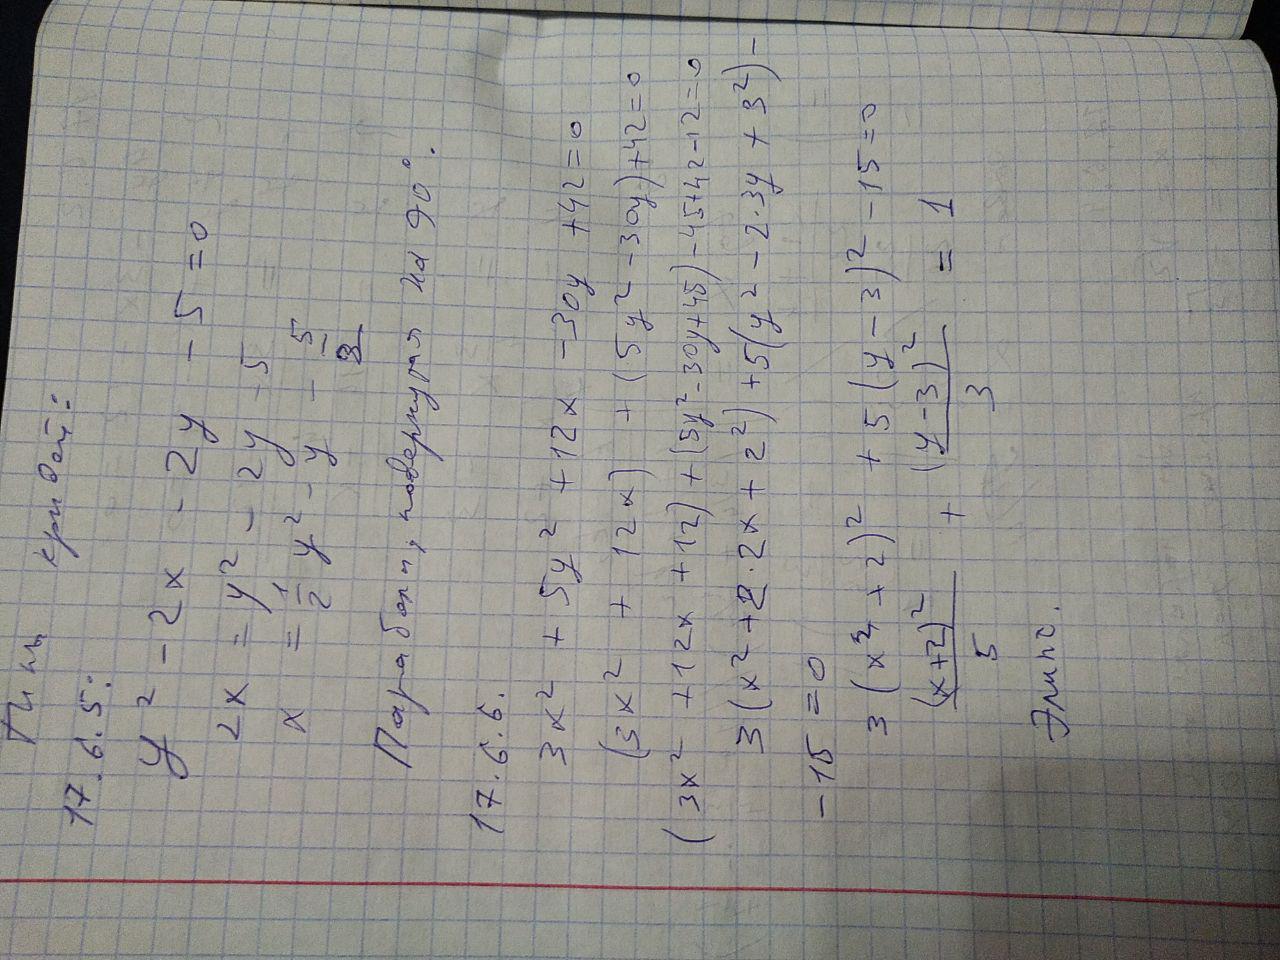 Тип кривой:
17.6.5:
y² - 2x - 2y - 5 = 0
2x = y² - 2y - 5
x = 1/2 y² - y - 5/2
Парабола, повернутая на 90°.
17.6.6.
3x² + 5y² + 12x - 30y + 42 = 0
(3x² + 12x) + (5y² - 30y) + 42 = 0
(3x² + 12x + 12) + (5y² - 30y + 45) - 45 + 42 - 12 = 0
3(x² + 2·2x + 2²) + 5(y² - 2·3y + 3²) -
- 15 = 0
3(x + 2)² + 5(y - 3)² - 15 = 0
(x+2)²/5 + (y-3)²/3 = 1
Элипс.